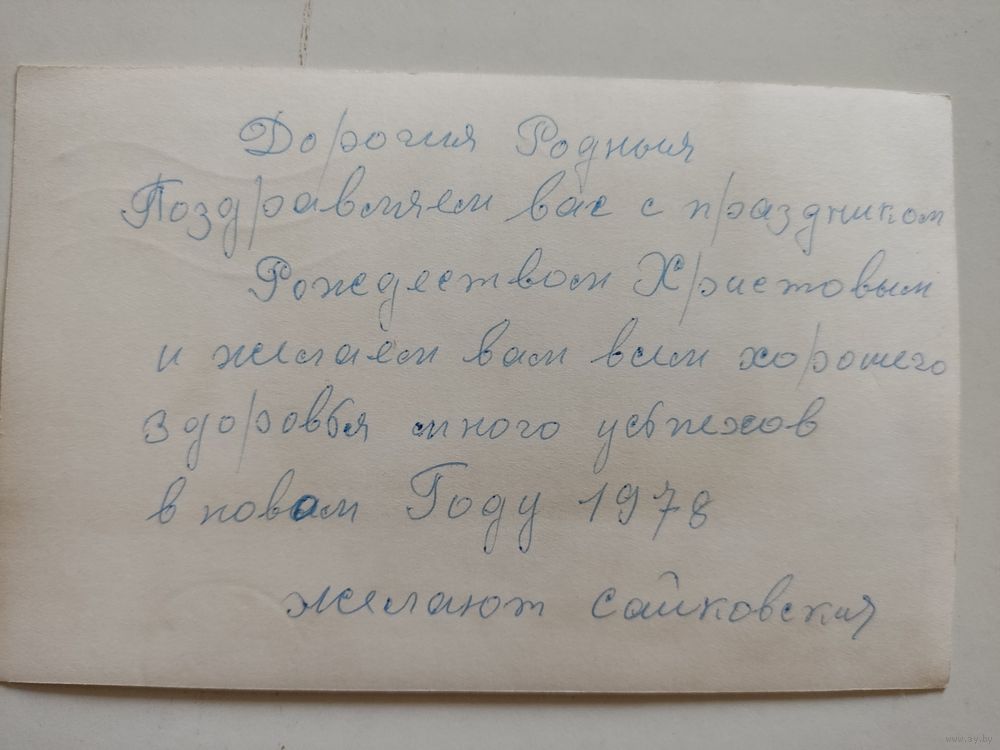 Дорогия Родныя
Поздравляем вас с праздником
Рождеством Христовым
и желаем вам всем хорошего
здоровья много успехов
в новом Году 1978
желают сайковския
www.ay.by